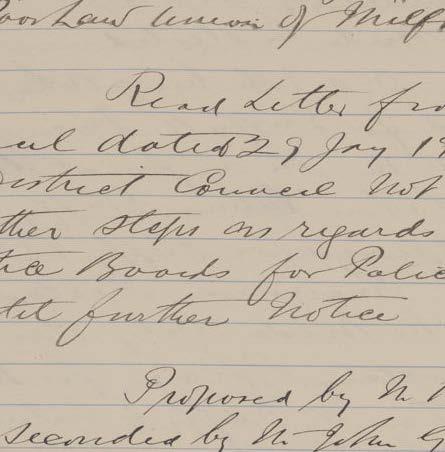 oor Law Union of Milf
Read Letter fro
cil dated 29 Jay 19
District Council Not
ther steps as regards
tice Boards for Polic
til further Notice
Proposed by Mr
seconded by Mr John G